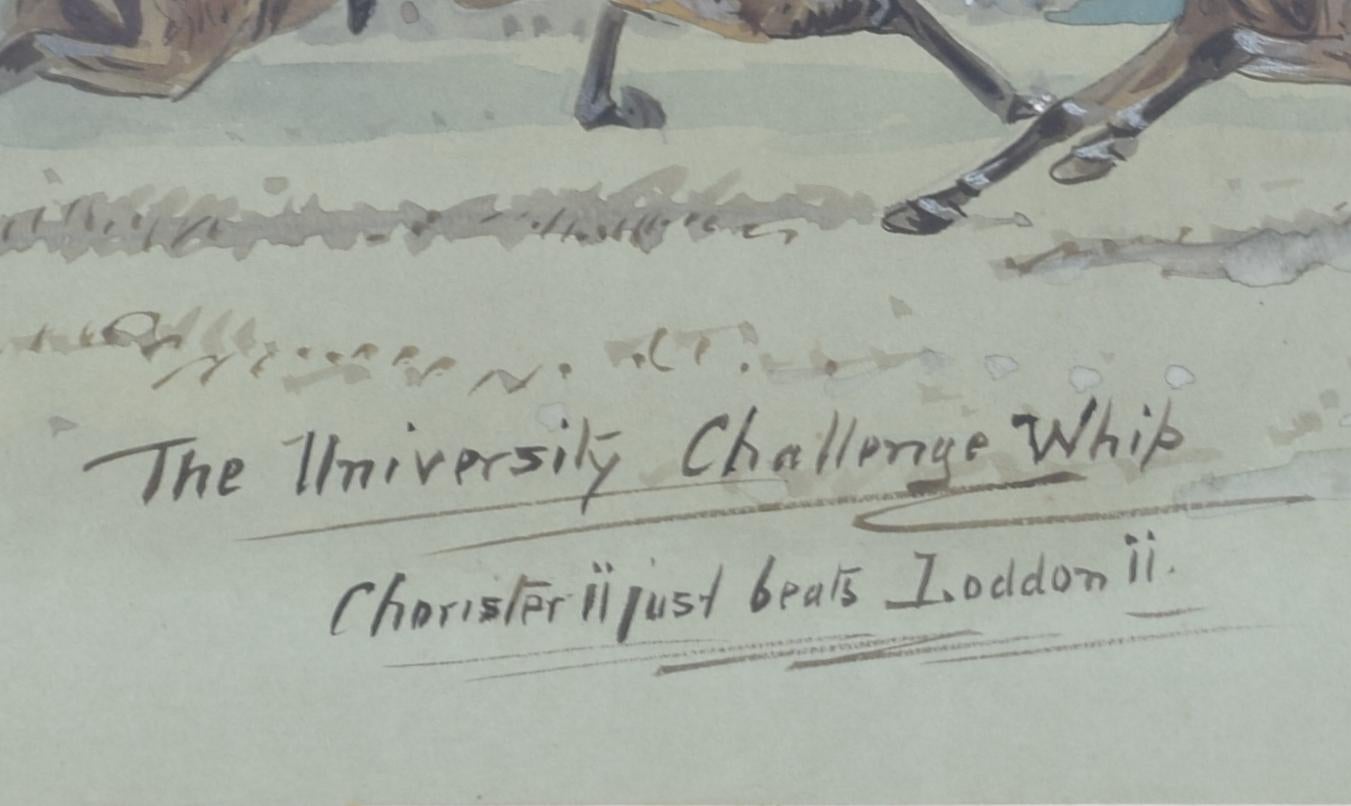 The University Challenge Whip
Chorister ii just beats Loddon ii.